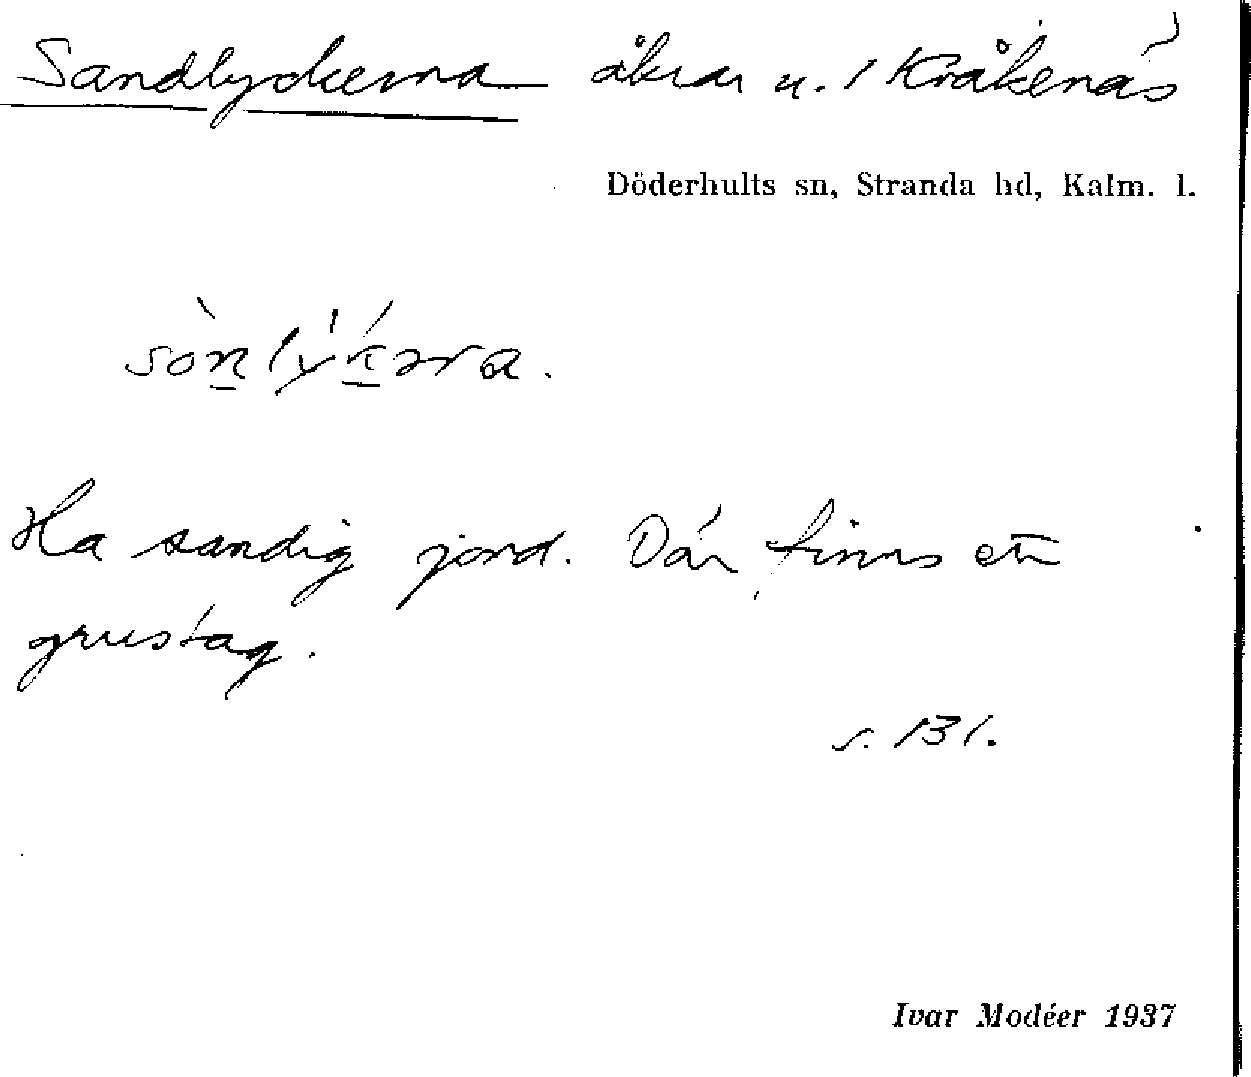 Sandlyckerna åkrar u. / Kråkenäs
Döderhults sn, Stranda hd, Kalm. l.
Ha sandig jord. Där finns ett
grustag.
s. 131.
Ivar Modéer 1937